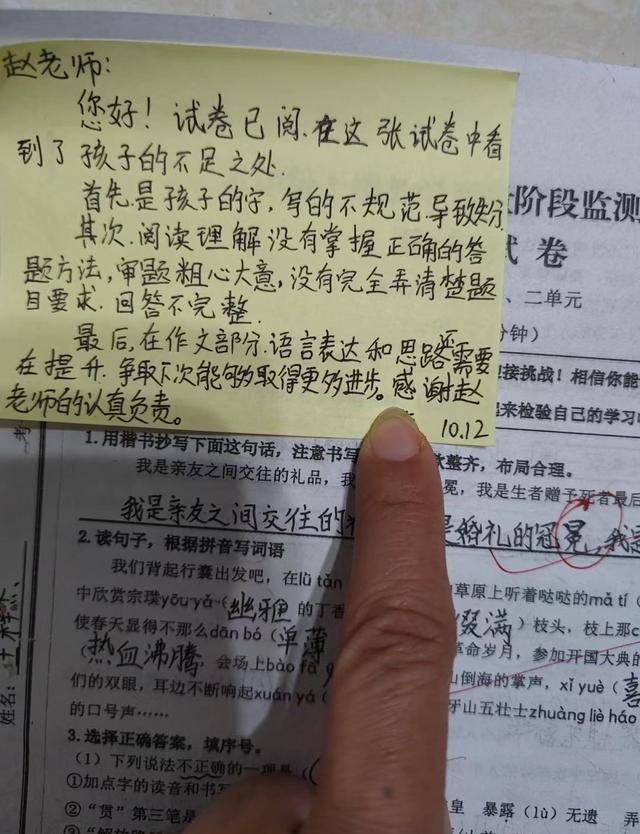 赵老师：
您好！试卷已阅.在这张试卷中看
到了孩子的不足之处.
首先是孩子的字,写的不规范.导致失分.
其次.阅读理解没有掌握正确的答
题方法,审题粗心大意,没有完全弄清楚题
目要求.回答不完整.
最后,在作文部分.语言表达和思路还需要
在提升.争取下次能够取得更多进步。感谢赵
老师的认真负责。
10.12
阶段监测
试卷
、二单元
分钟）
迎接挑战！相信你能
起来检验自己的学习
1.用楷书抄写下面这句话，注意书写
整齐，布局合理。
我是亲友之间交往的礼品，我
冕，我是生者赠予死者最后
我是亲友之间交往的
是婚礼的冠冕,我是
2.读句子，根据拼音写词语
我们背起行囊出发吧，在lǜ tǎn
草原上听着哒哒的mǎ tí（
中欣赏宗璞yōu yǎ（幽雅）的丁香
缀满）枝头，枝上那
使春天显得不那么dān bó（单薄
革命岁月，参加开国大典的
（热血沸腾，会场上bào fā
山倒海的掌声，xǐ yuè（喜
们的双眼，耳边不断响起xuān yá（
牙山五壮士zhuàng liè háo
的口号声……
3.选择正确答案，填序号。
（1）下列说法不正确的一项是
①加点字的读音和书写
皇 暴露（lù）无遗 弄
②“贯”第三笔是
姓名：